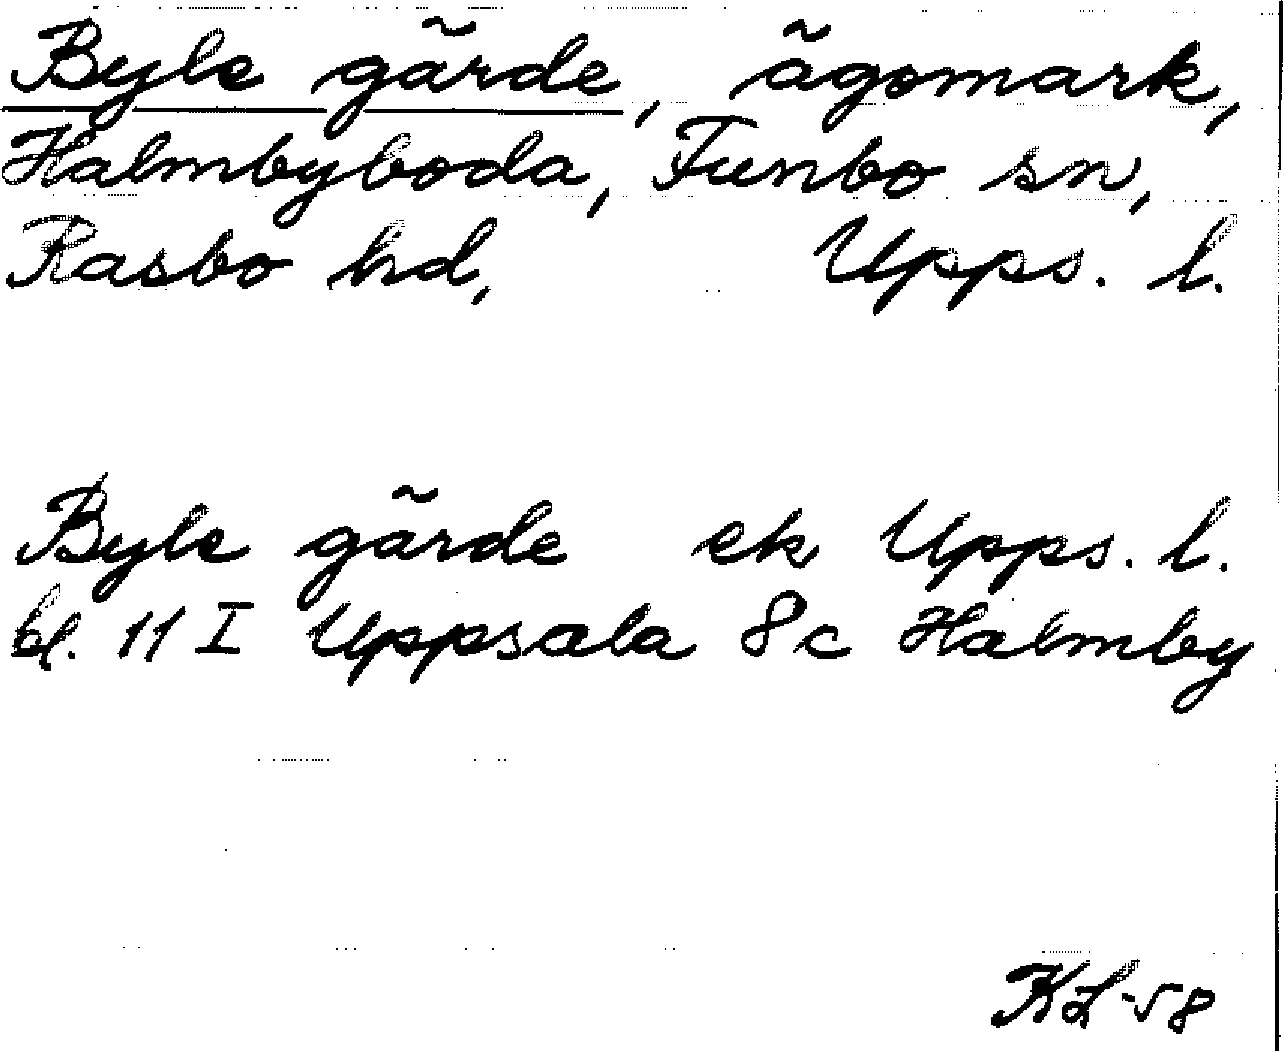 Byle gärde, ägomark,
Halmbyboda, Funbo sn,
Rasbo hd, Upps. l.
Byle gärde ek Upps. l.
bl. 11 I Uppsala 8c Halmby
KL-58